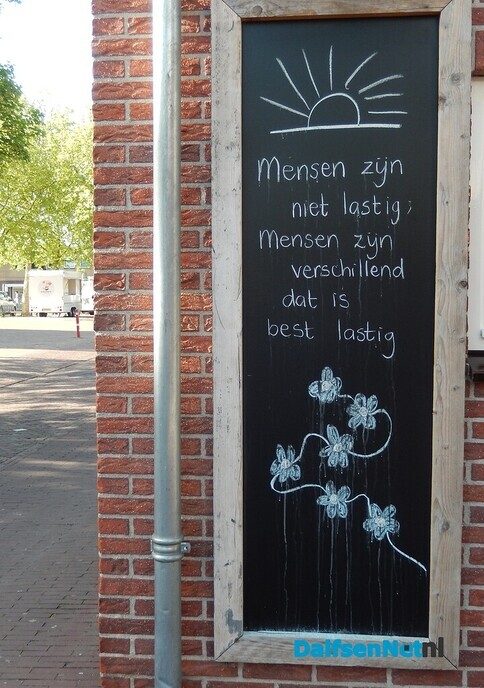 Mensen zijn
niet lastig;
Mensen zijn
verschillend
dat is
best lastig
DalfsenNet.nl